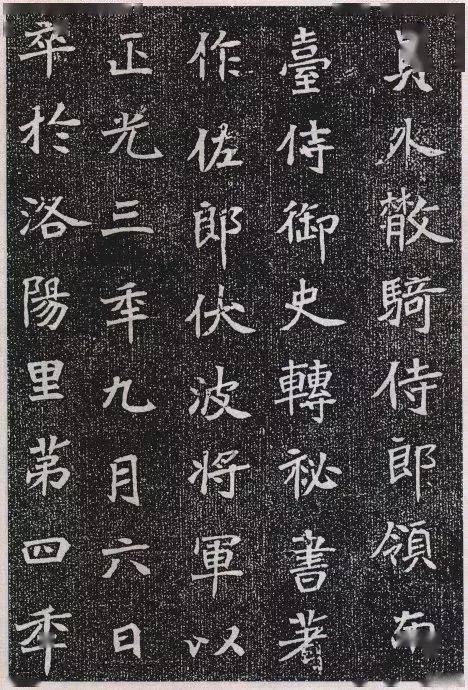 員外散騎侍郎領南
臺侍御史轉祕書著
作佐郎伏波將軍以
正光三年九月六日
卒於洛陽里苐四年